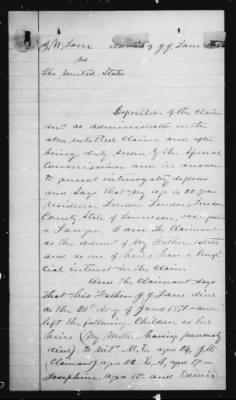 J. W. Lane Admr of J. J. Lane
vs
The United States
Deposition of the Claim
ant as administrator in the
above entitled Claim and after
being duly sworn by the Special
Commissioner and in answer
to general interrogatory deposes
and says that My age is 22 years
residence Loudon Loudon
County State of Tennessee, occupa
a Lawyer I am the Claimant
as the admr of My Father estate
and as one of heirs has a benefi
cial interest in the Claim
And the Claimant says
that his Father J. J. Lane died
on the 21st day of June 1871 and
left the following Children as his
heirs (My Mother having previously
died) to wit M. E. aged 24, J. W.
Claimant aged 22 E. A. aged 17
Josephine, aged 15 and